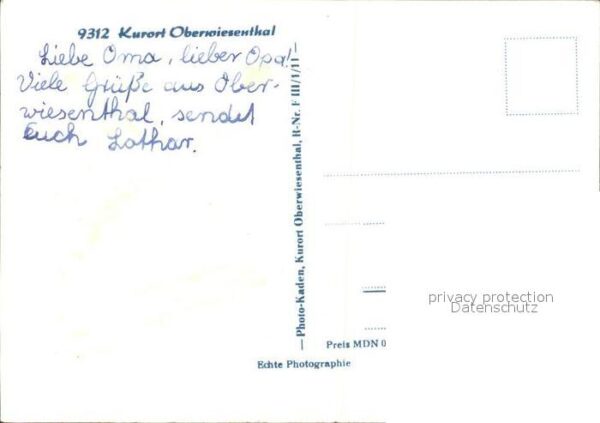 9312 Kurort Oberwiesenthal
Liebe Oma, lieber Opa!
Viele Grüße aus Ober-
wiesenthal, sendet
Euch Lothar.
— Photo-Kaden, Kurort Oberwiesenthal, R-Nr. F III/1/11 —
Preis MDN 0
Echte Photographie
privacy protection
Datenschutz